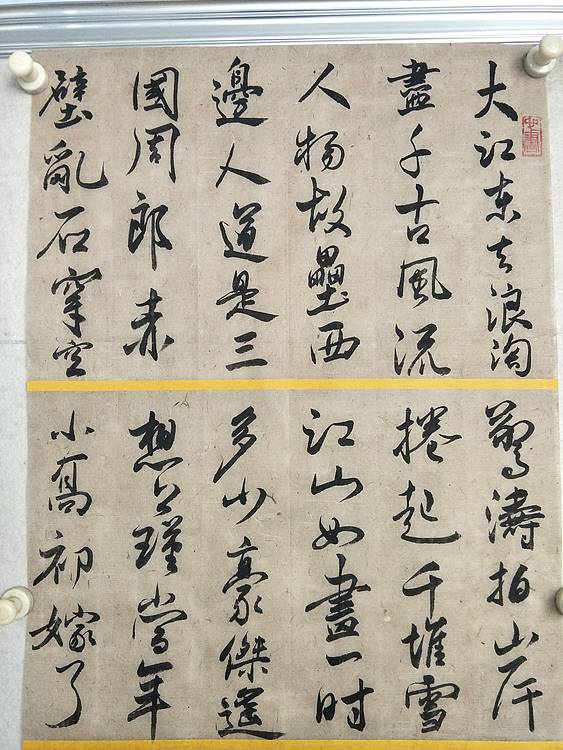 大江東去浪淘
盡千古風流
人物故壘西
邊人道是三
國周郎赤
壁亂石穿空
驚濤拍岸
捲起千堆雪
江山如畫一时
多少豪傑遙
想公瑾當年
小喬初嫁了